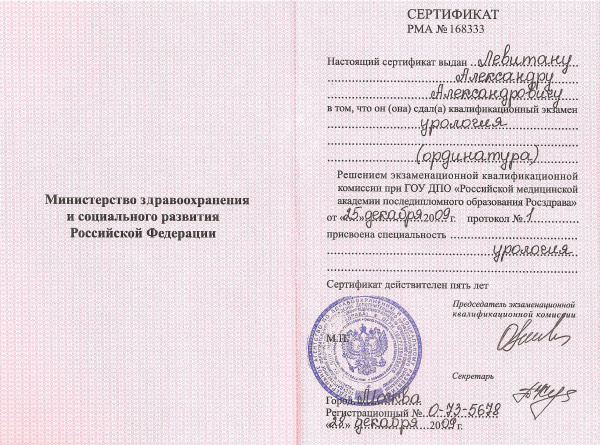 Министерство здравоохранения
и социального развития
Российской Федерации
СЕРТИФИКАТ
РМА № 168333
Настоящий сертификат выдан Левитану
Александру
Александровичу
в том, что он (она) сдал(а) квалификационный экзамен
урология
(ординатура)
Решением экзаменационной квалификационной
комиссии при ГОУ ДПО «Российской медицинской
академии последипломного образования Росздрава»
от «25» декабря 2009 г. протокол № 1
присвоена специальность
урология
Сертификат действителен пять лет
Председатель экзаменационной
квалификационной комиссии
М.П.
Секретарь
Город Москва
Регистрационный № 0-73-5678
«28» декабря 2009 г.